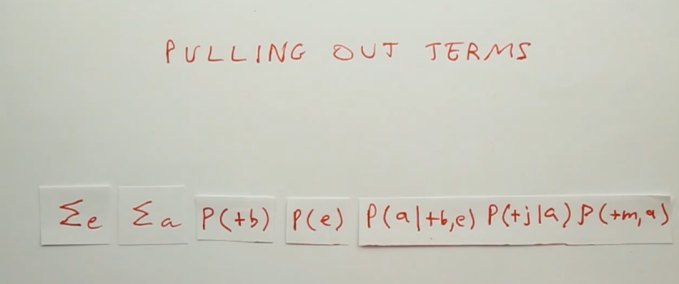 PULLING OUT TERMS
Σe Σa P(+b) P(e) P(a|+b,e) P(+j|a) P(+m,a)